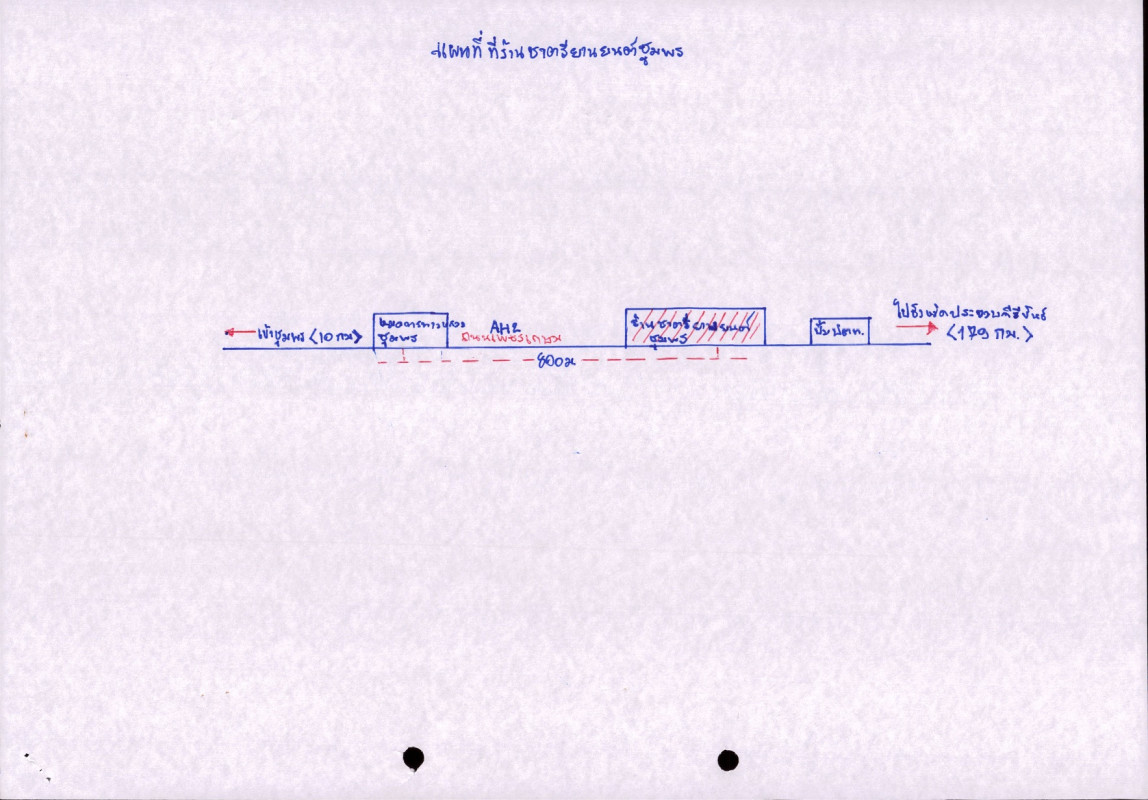 แผนที่ ที่ร้านชาตรียานยนต์ชุมพร
ไปจังหวัดประจวบคีรีขันธ์
<179 กม.>
เข้าชุมพร <10 กม>
หมวดการทางปลวง
ชุมพร
AH2
ถนนเพชรเกษม
ร้านชาตรียานยนต์
ชุมพร
ปั๊มปตท.
800ม